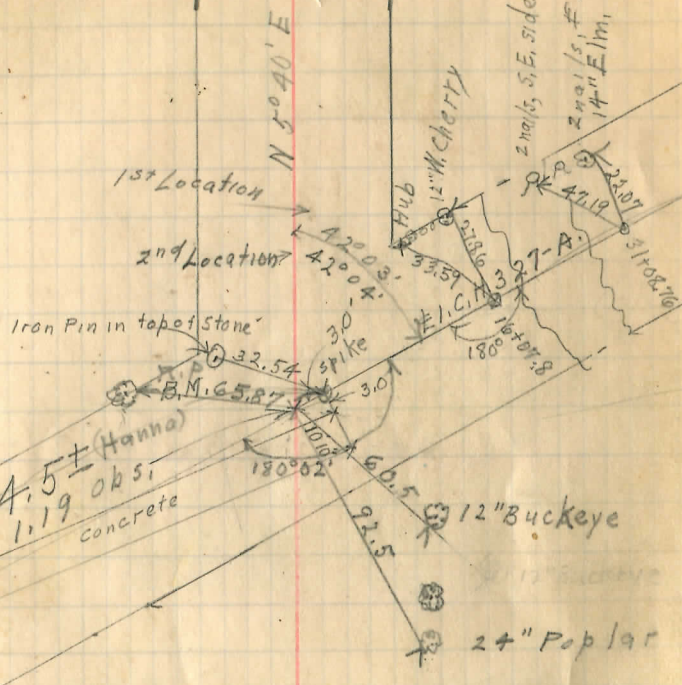 N 5° 40' E
2 nails, S.E. side
2 nails, E
14" Elm,
12" W. Cherry
Hub
1st Location
2nd Location
42° 03'
42° 04'
27.86
33.59
47.19
22.07
31+08.76
7-A.
3
16+07.8
180°
I.C.H.
Iron Pin in top of Stone
32.54
3.0'
Spike
3.0
A.P.
B.M. 65.87
(Hanna)
4.5±
1.19 obs.
concrete
180°02'
10.10
60.5
92.5
12" Buckeye
24" Poplar